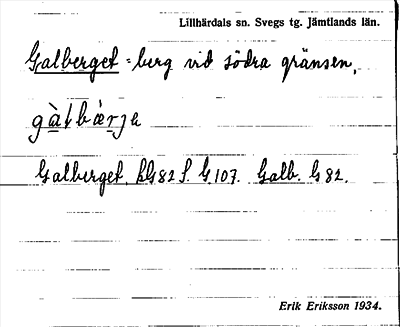 Lillhärdals sn. Svegs tg. Jämtlands län.
Galberget = berg vid södra gränsen,
Galberget, hG82 f. G.107. Galb. G 82.
Erik Eriksson 1934.